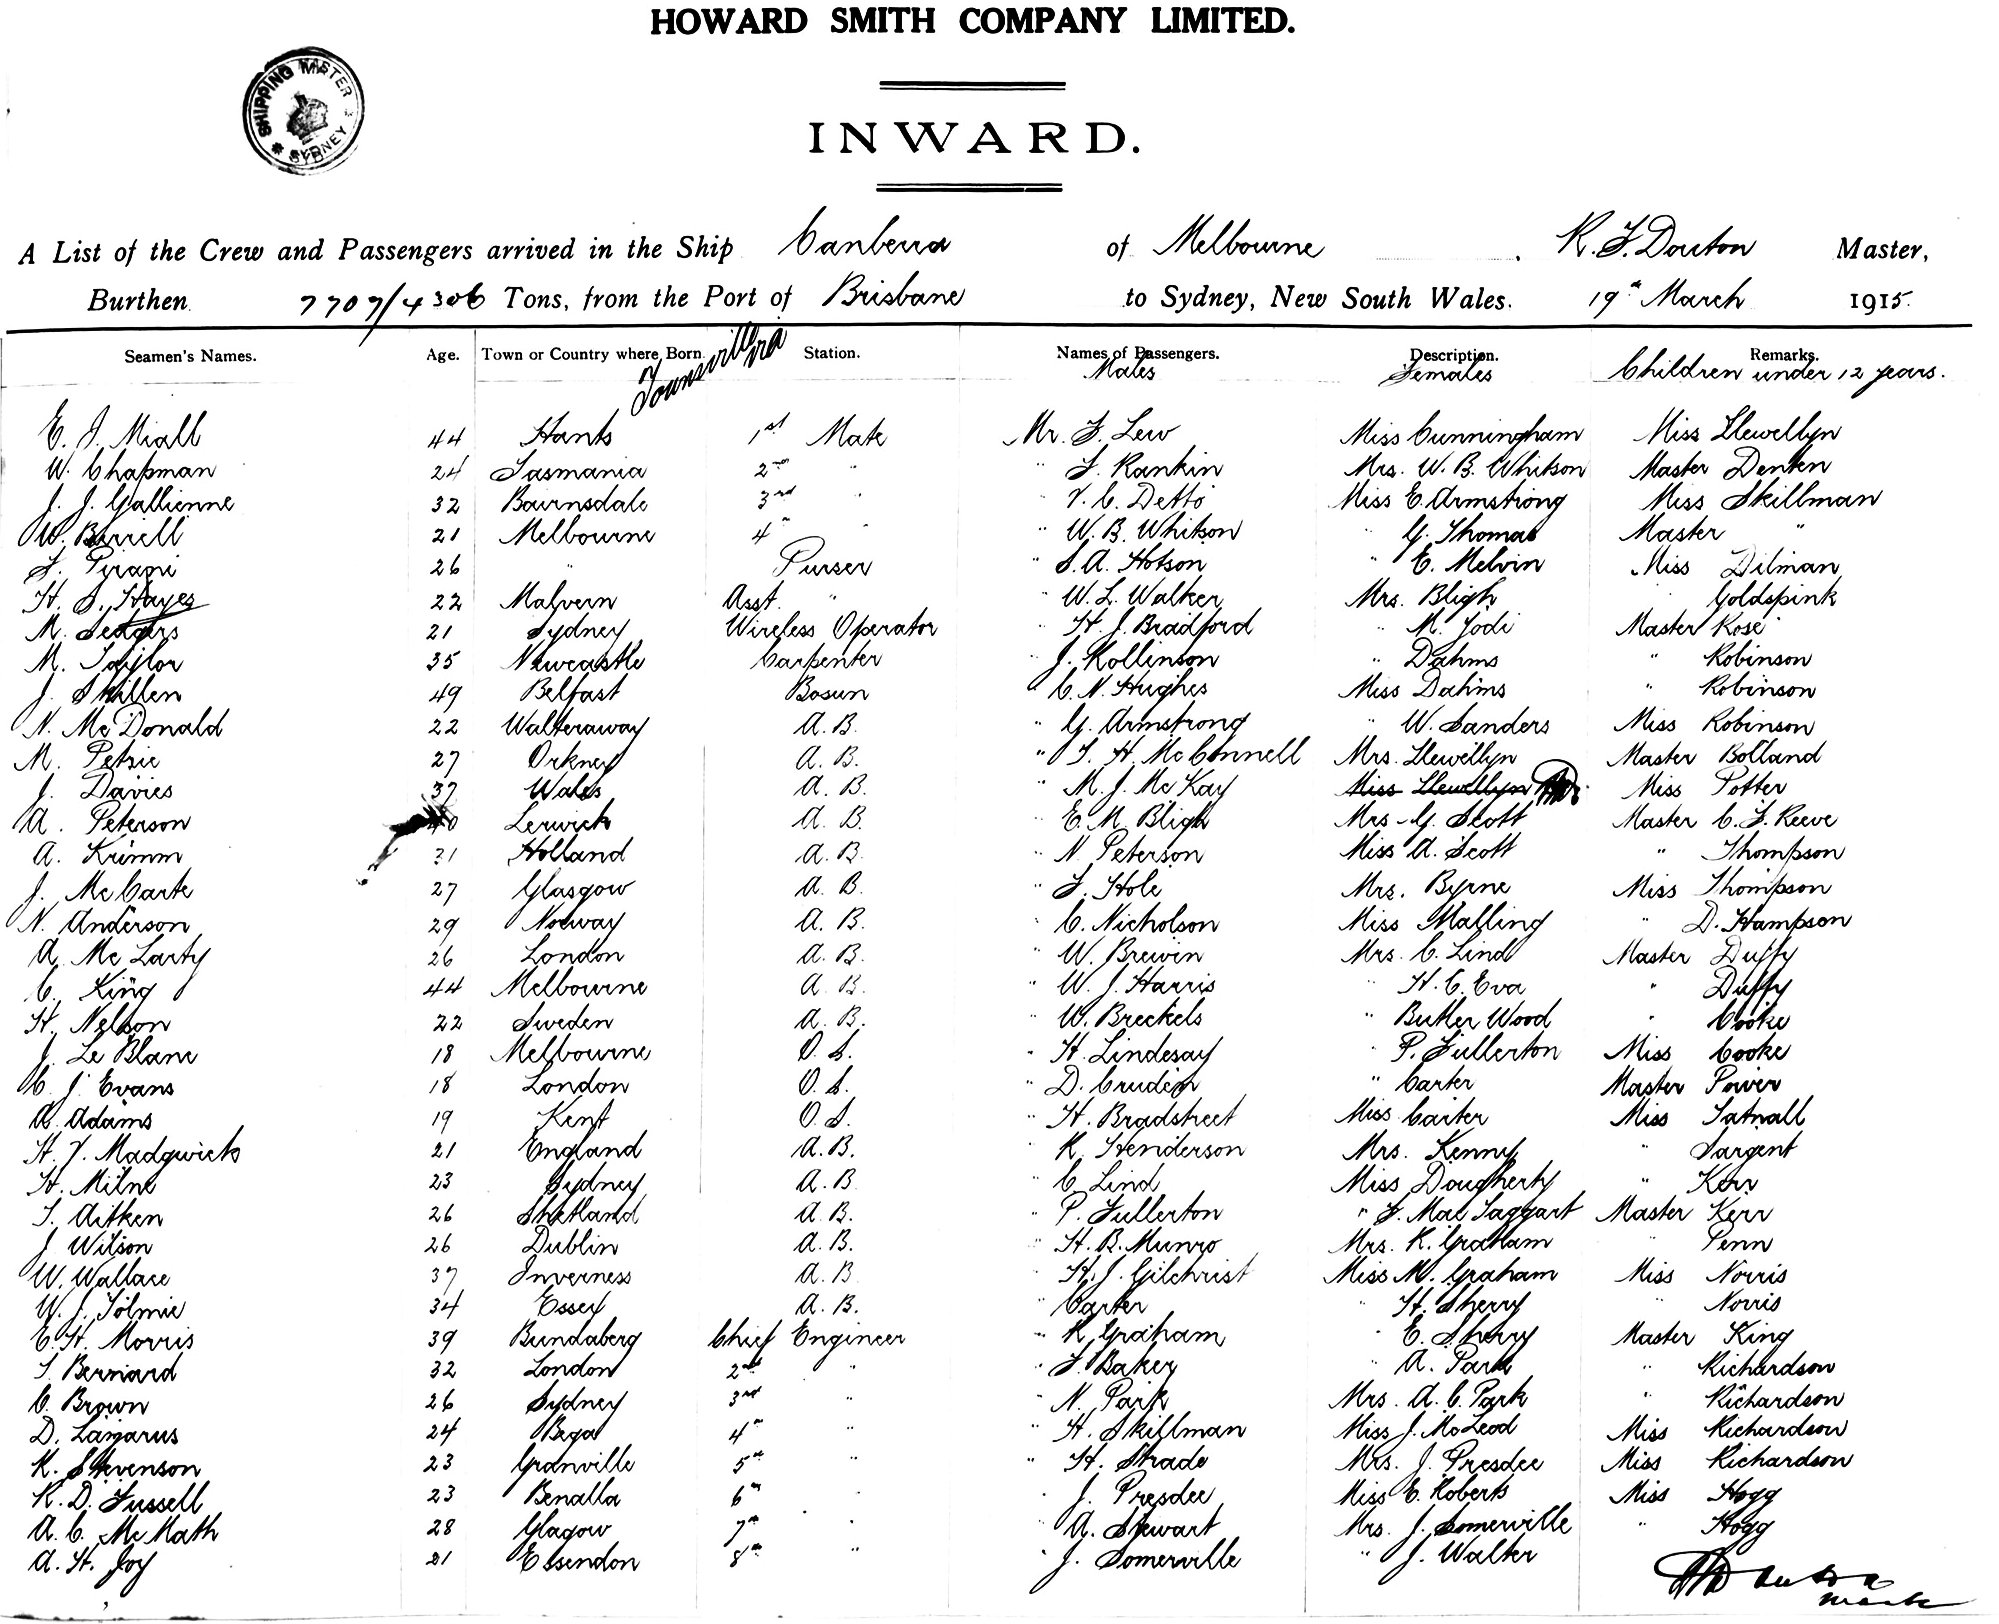 HOWARD SMITH COMPANY LIMITED.
SHIPPING MASTER SYDNEY
INWARD.
A List of the Crew and Passengers arrived in the Ship Canberra of Melbourne R. F. Douton Master,
Burthen 7707/4306 Tons, from the Port of Brisbane to Sydney, New South Wales. 19th March 1915.
Townsville via
Seamen's Names. Age. Town or Country where Born. Station. Names of Passengers. Description. Remarks.
Males Females Children under 12 years.
E. J. Miall 44 Hants 1st Mate Mr. F. Lew Miss Cunningham Miss Llewellyn
W. Chapman 24 Tasmania 2nd " " F. Rankin Mrs. W. B. Whitson Master Denten
J. J. Gallienne 32 Bairnsdale 3rd " " V. C. Detto Miss E. Armstrong Miss Skillman
W. Birrell 21 Melbourne 4th " " W. B. Whitson " G. Thomas Master "
26 " Purser " S. A. Hotson " E. Melvin Miss Dilman
H. S. Hayes 22 Malvern Asst. " " W. L. Walker Mrs. Bligh " Goldspink
M. Seagers 21 Sydney Wireless Operator " H. J. Bradford " M. Jodi Master Rose
M. Taylor 35 Newcastle Carpenter " J. Rollinson " Dahms " Robinson
J. Skillen 49 Belfast Bosun " C. N. Hughes Miss Dahms " Robinson
N. McDonald 22 Walteraway A. B. " G. Armstrong " W. Sanders Miss Robinson
M. Petrie 27 Orkney A. B. " T. H. McConnell Mrs. Llewellyn Master Bolland
J. Davies 37 Wales A. B. " M. J. McKay Miss Llewellyn Miss Potter
A. Peterson 40 Lerwick A. B. " E. M. Bligh Mrs G. Scott Master C. F. Reeve
A. Krimm 31 Holland A. B. " N. Peterson Miss A. Scott " Thompson
J. McCarte 27 Glasgow A. B. " F. Hole Mrs. Byrne Miss Thompson
N. Anderson 29 Norway A. B. " C. Nicholson Miss Malling " D. Hampson
A. McLarty 26 London A. B. " W. Brewin Mrs. C. Lind Master Duffy
C. King 44 Melbourne A. B. " W. J. Harris " H. C. Eva " Duffy
H. Nelson 22 Sweden A. B. " W. Breckels " Butler Wood " Cooke
J. Le Blanc 18 Melbourne O. S. " H. Lindesay " P. Fullerton Miss Cooke
C. J. Evans 18 London O. S. " D. Cruden " Carter Master Power
A. Adams 19 Kent O. S. " H. Bradstreet Miss Carter Miss Tatnall
H. V. Madgwick 21 England A. B. " R. Henderson Mrs. Kenny " Sargent
H. Milne 23 Sydney A. B. " C. Lind Miss Dougherty " Kerr
T. Aitken 26 Shetland A. B. " P. Fullerton " F. MacTaggart Master Kerr
J. Wilson 26 Dublin A. B. " H. B. Munro Mrs. R. Graham " Penn
W. Wallace 37 Inverness A. B. " H. J. Gilchrist Miss M. Graham Miss Norris
W. J. Tolmie 34 Essex A. B. " Carter " H. Sherry " Norris
E. H. Morris 39 Bundaberg Chief Engineer " R. Graham " E. Sherry Master King
T. Bernard 32 London 2nd " " F. Baker " A. Park " Richardson
C. Brown 26 Sydney 3rd " " N. Park Mrs. A. C. Park " Richardson
D. Lazarus 24 Bega 4th " " H. Skillman Miss J. McLeod Miss Richardson
R. Stevenson 23 Granville 5th " " H. Strade Mrs. J. Presdee Miss Richardson
R. D. Fussell 23 Benalla 6th " " J. Presdee Miss E. Roberts Miss Hogg
A. C. McMath 28 Glagow 7th " " A. Stewart Mrs. J. Somerville " Hogg
A. H. Joy 21 Essendon 8th " " J. Somerville " J. Walter